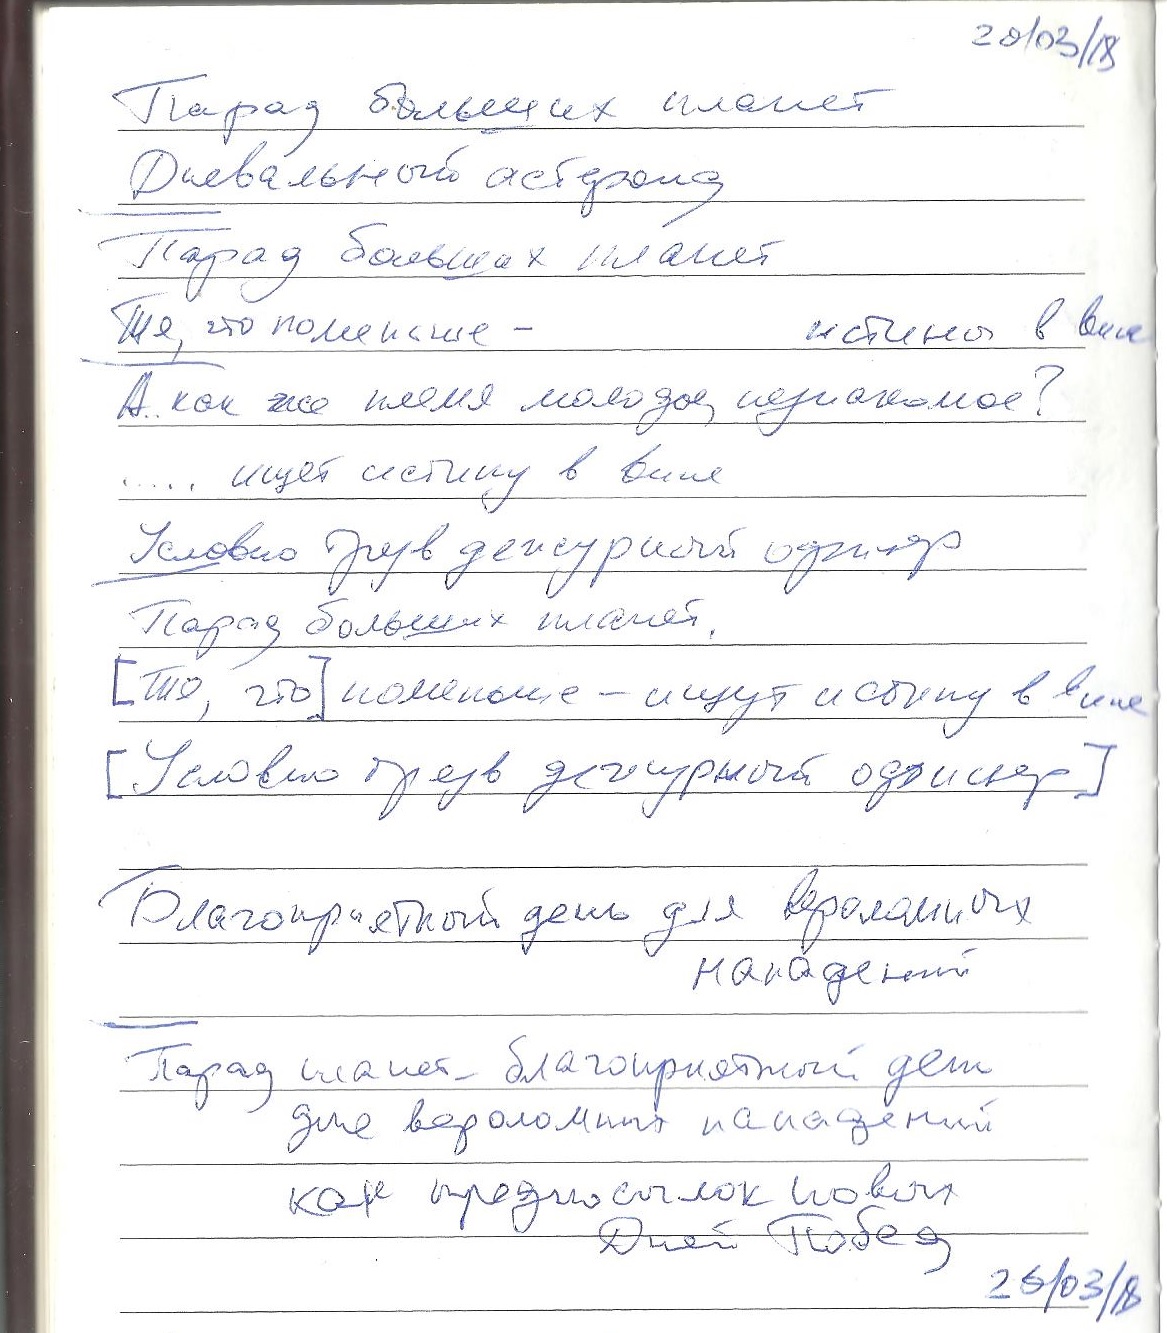 20/03/18
Парад больших планет
Дневальный астероид
Парад больших планет
Те, что поменьше – истины в вине
А как же племя молодое, незнакомое?
..... ищет истину в вине
Условно трезв дежурный офицер
Парад больших планет.
[Те, что] поменьше – ищут истину в вине
[Условно трезв дежурный офицер]
Благоприятный день для вероломных
нападений
Парад планет – благоприятный день
для вероломных нападений
как предпосылок новых
Дней Побед
26/03/18